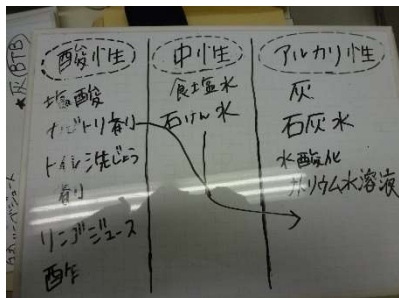 *灰(BTB)
酸性
塩酸
カビトリ剤
トイレ洗じょう
剤
リンゴジュース
酢
中性
食塩水
石けん水
アルカリ性
灰
石灰水
水酸化
カリウム水溶液